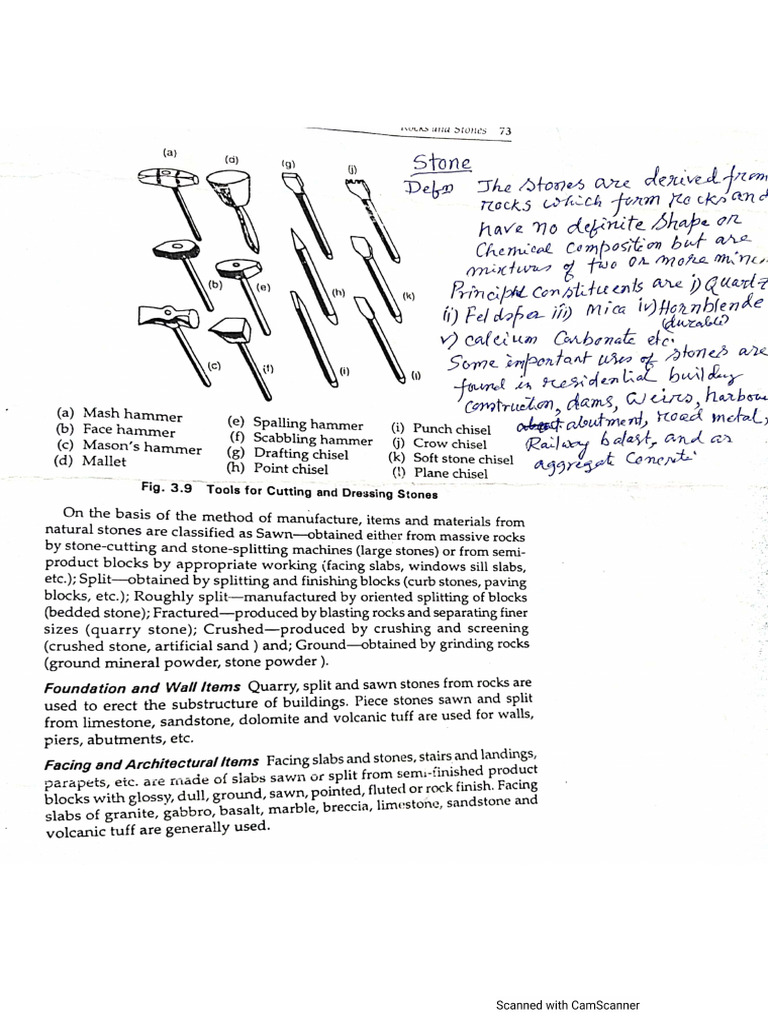 Rocks and Stones 73
(a)
(d)
(g)
(j)
(b)
(e)
(h)
(k)
(c)
(f)
(i)
(l)
Stone
Defn The stones are derived from
rocks which form rocks and
have no definite shape or
chemical composition but are
mixtures of two or more
Principle constituents are i) Quartz
ii) Feldsper iii) Mica iv) Hornblende
(durable)
v) calcium Carbonate etc.
Some important uses of stones are
found in residential building
construction, dams, weirs, harbour
abutment, road metal,
Railway balast, and as
aggregate concrete.
(a) Mash hammer
(b) Face hammer
(c) Mason's hammer
(d) Mallet
(e) Spalling hammer
(f) Scabbling hammer
(g) Drafting chisel
(h) Point chisel
(i) Punch chisel
(j) Crow chisel
(k) Soft stone chisel
(l) Plane chisel
Fig. 3.9 Tools for Cutting and Dressing Stones
On the basis of the method of manufacture, items and materials from
natural stones are classified as Sawn—obtained either from massive rocks
by stone-cutting and stone-splitting machines (large stones) or from semi-
product blocks by appropriate working (facing slabs, windows sill slabs,
etc.); Split—obtained by splitting and finishing blocks (curb stones, paving
blocks, etc.); Roughly split—manufactured by oriented splitting of blocks
(bedded stone); Fractured—produced by blasting rocks and separating finer
sizes (quarry stone); Crushed—produced by crushing and screening
(crushed stone, artificial sand ) and; Ground—obtained by grinding rocks
(ground mineral powder, stone powder ).
Foundation and Wall Items Quarry, split and sawn stones from rocks are
used to erect the substructure of buildings. Piece stones sawn and split
from limestone, sandstone, dolomite and volcanic tuff are used for walls,
piers, abutments, etc.
Facing and Architectural Items Facing slabs and stones, stairs and landings,
parapets, etc. are made of slabs sawn or split from semi-finished product
blocks with glossy, dull, ground, sawn, pointed, fluted or rock finish. Facing
slabs of granite, gabbro, basalt, marble, breccia, limestone, sandstone and
volcanic tuff are generally used.
Scanned with CamScanner